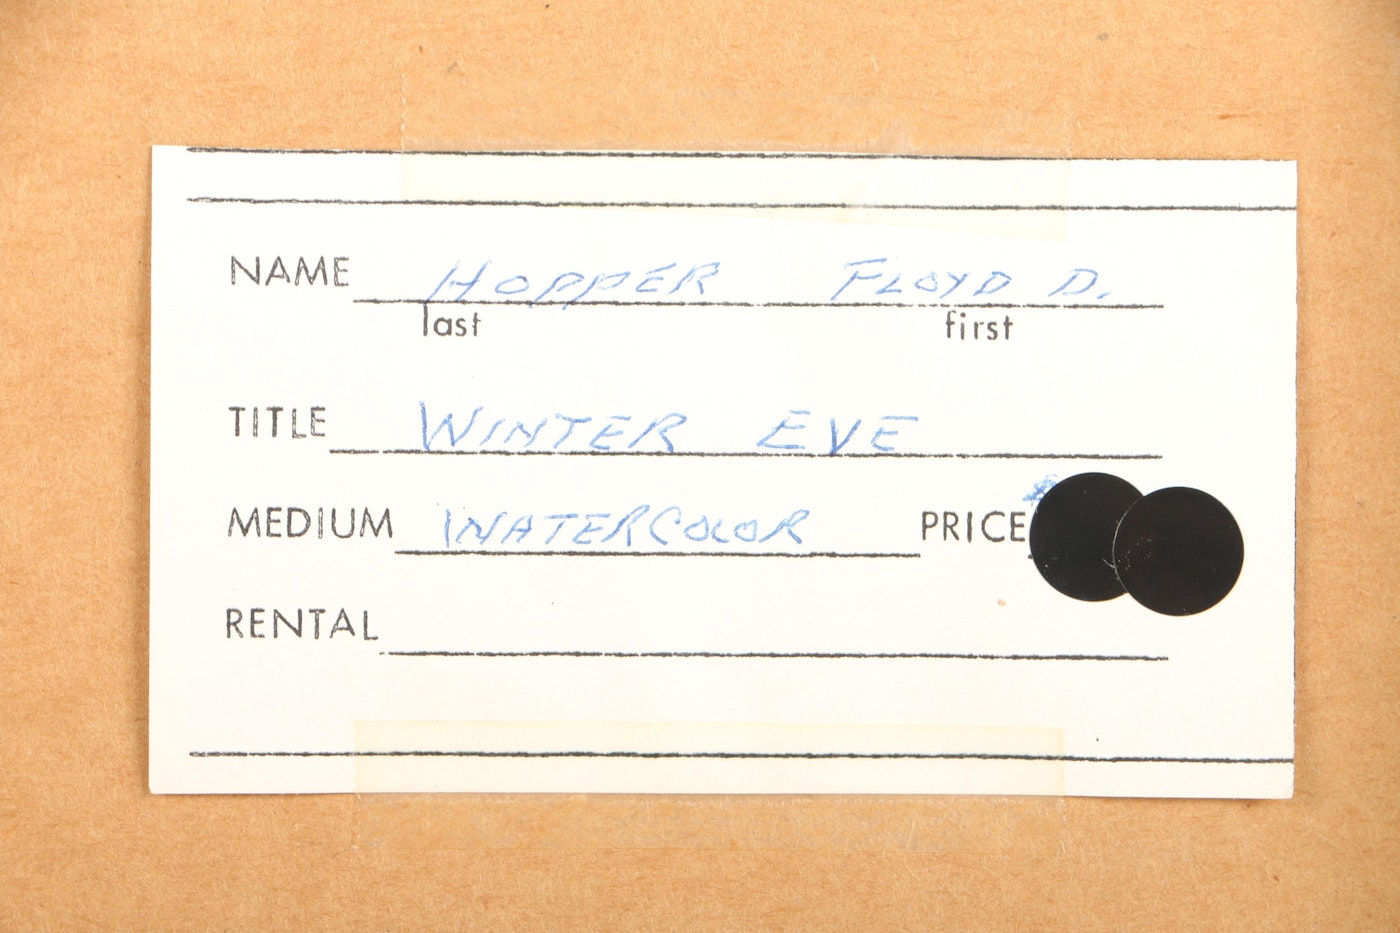 NAME HOPPER FLOYD D.
last first
TITLE WINTER EVE
MEDIUM WATERCOLOR PRICE $
RENTAL